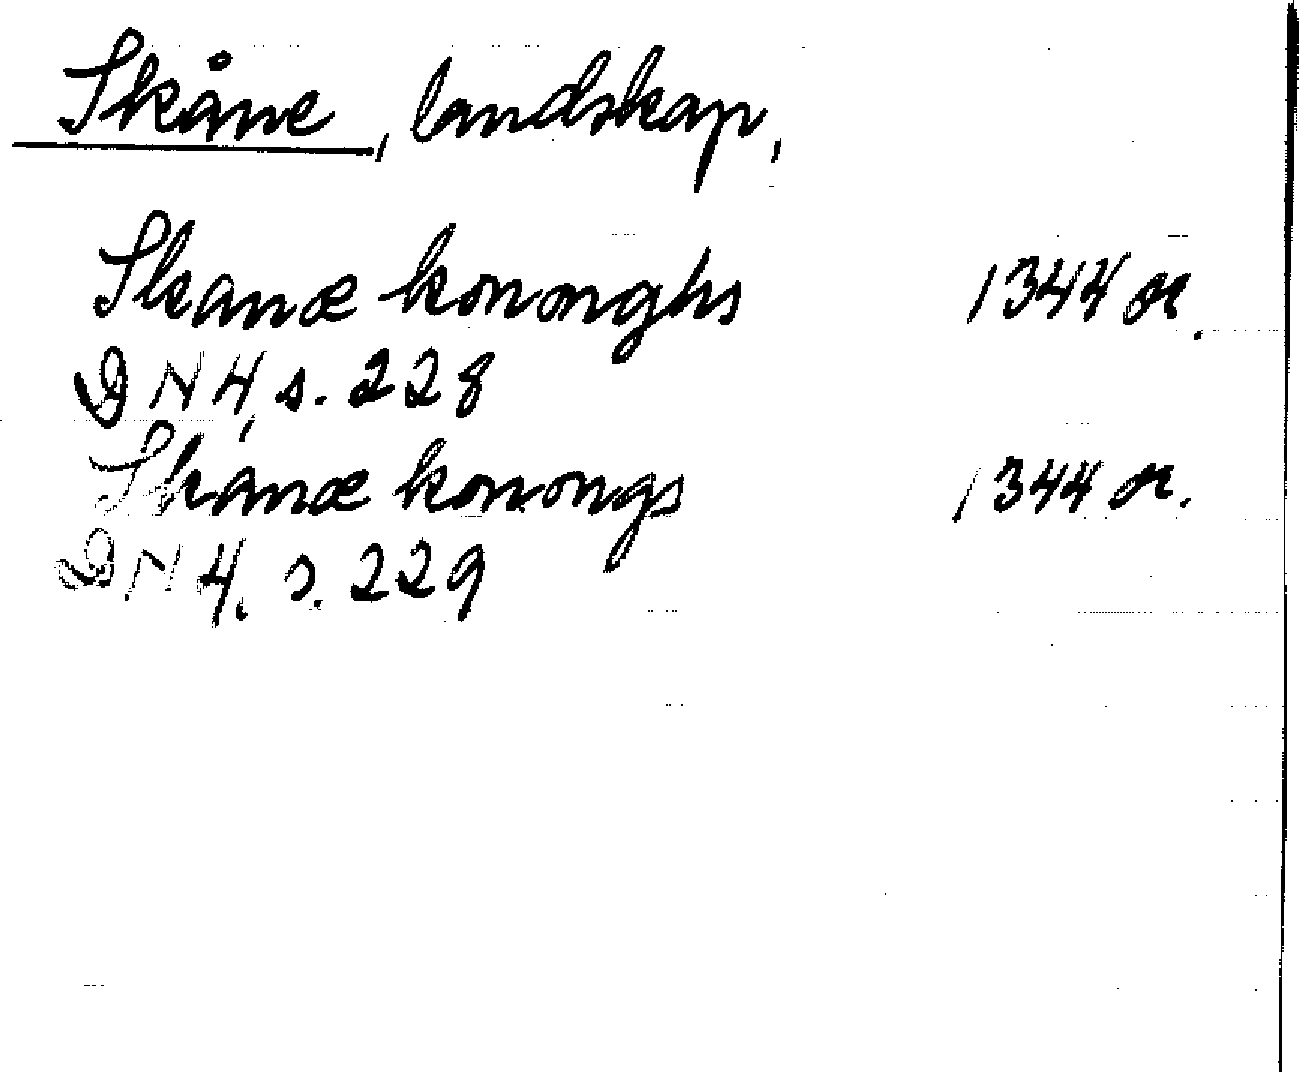 Skåne, landskap,
Skanæ kononghs 1344 or.
DN 4, s. 228
Skanæ konongs 1344 or.
DN 4, s. 229